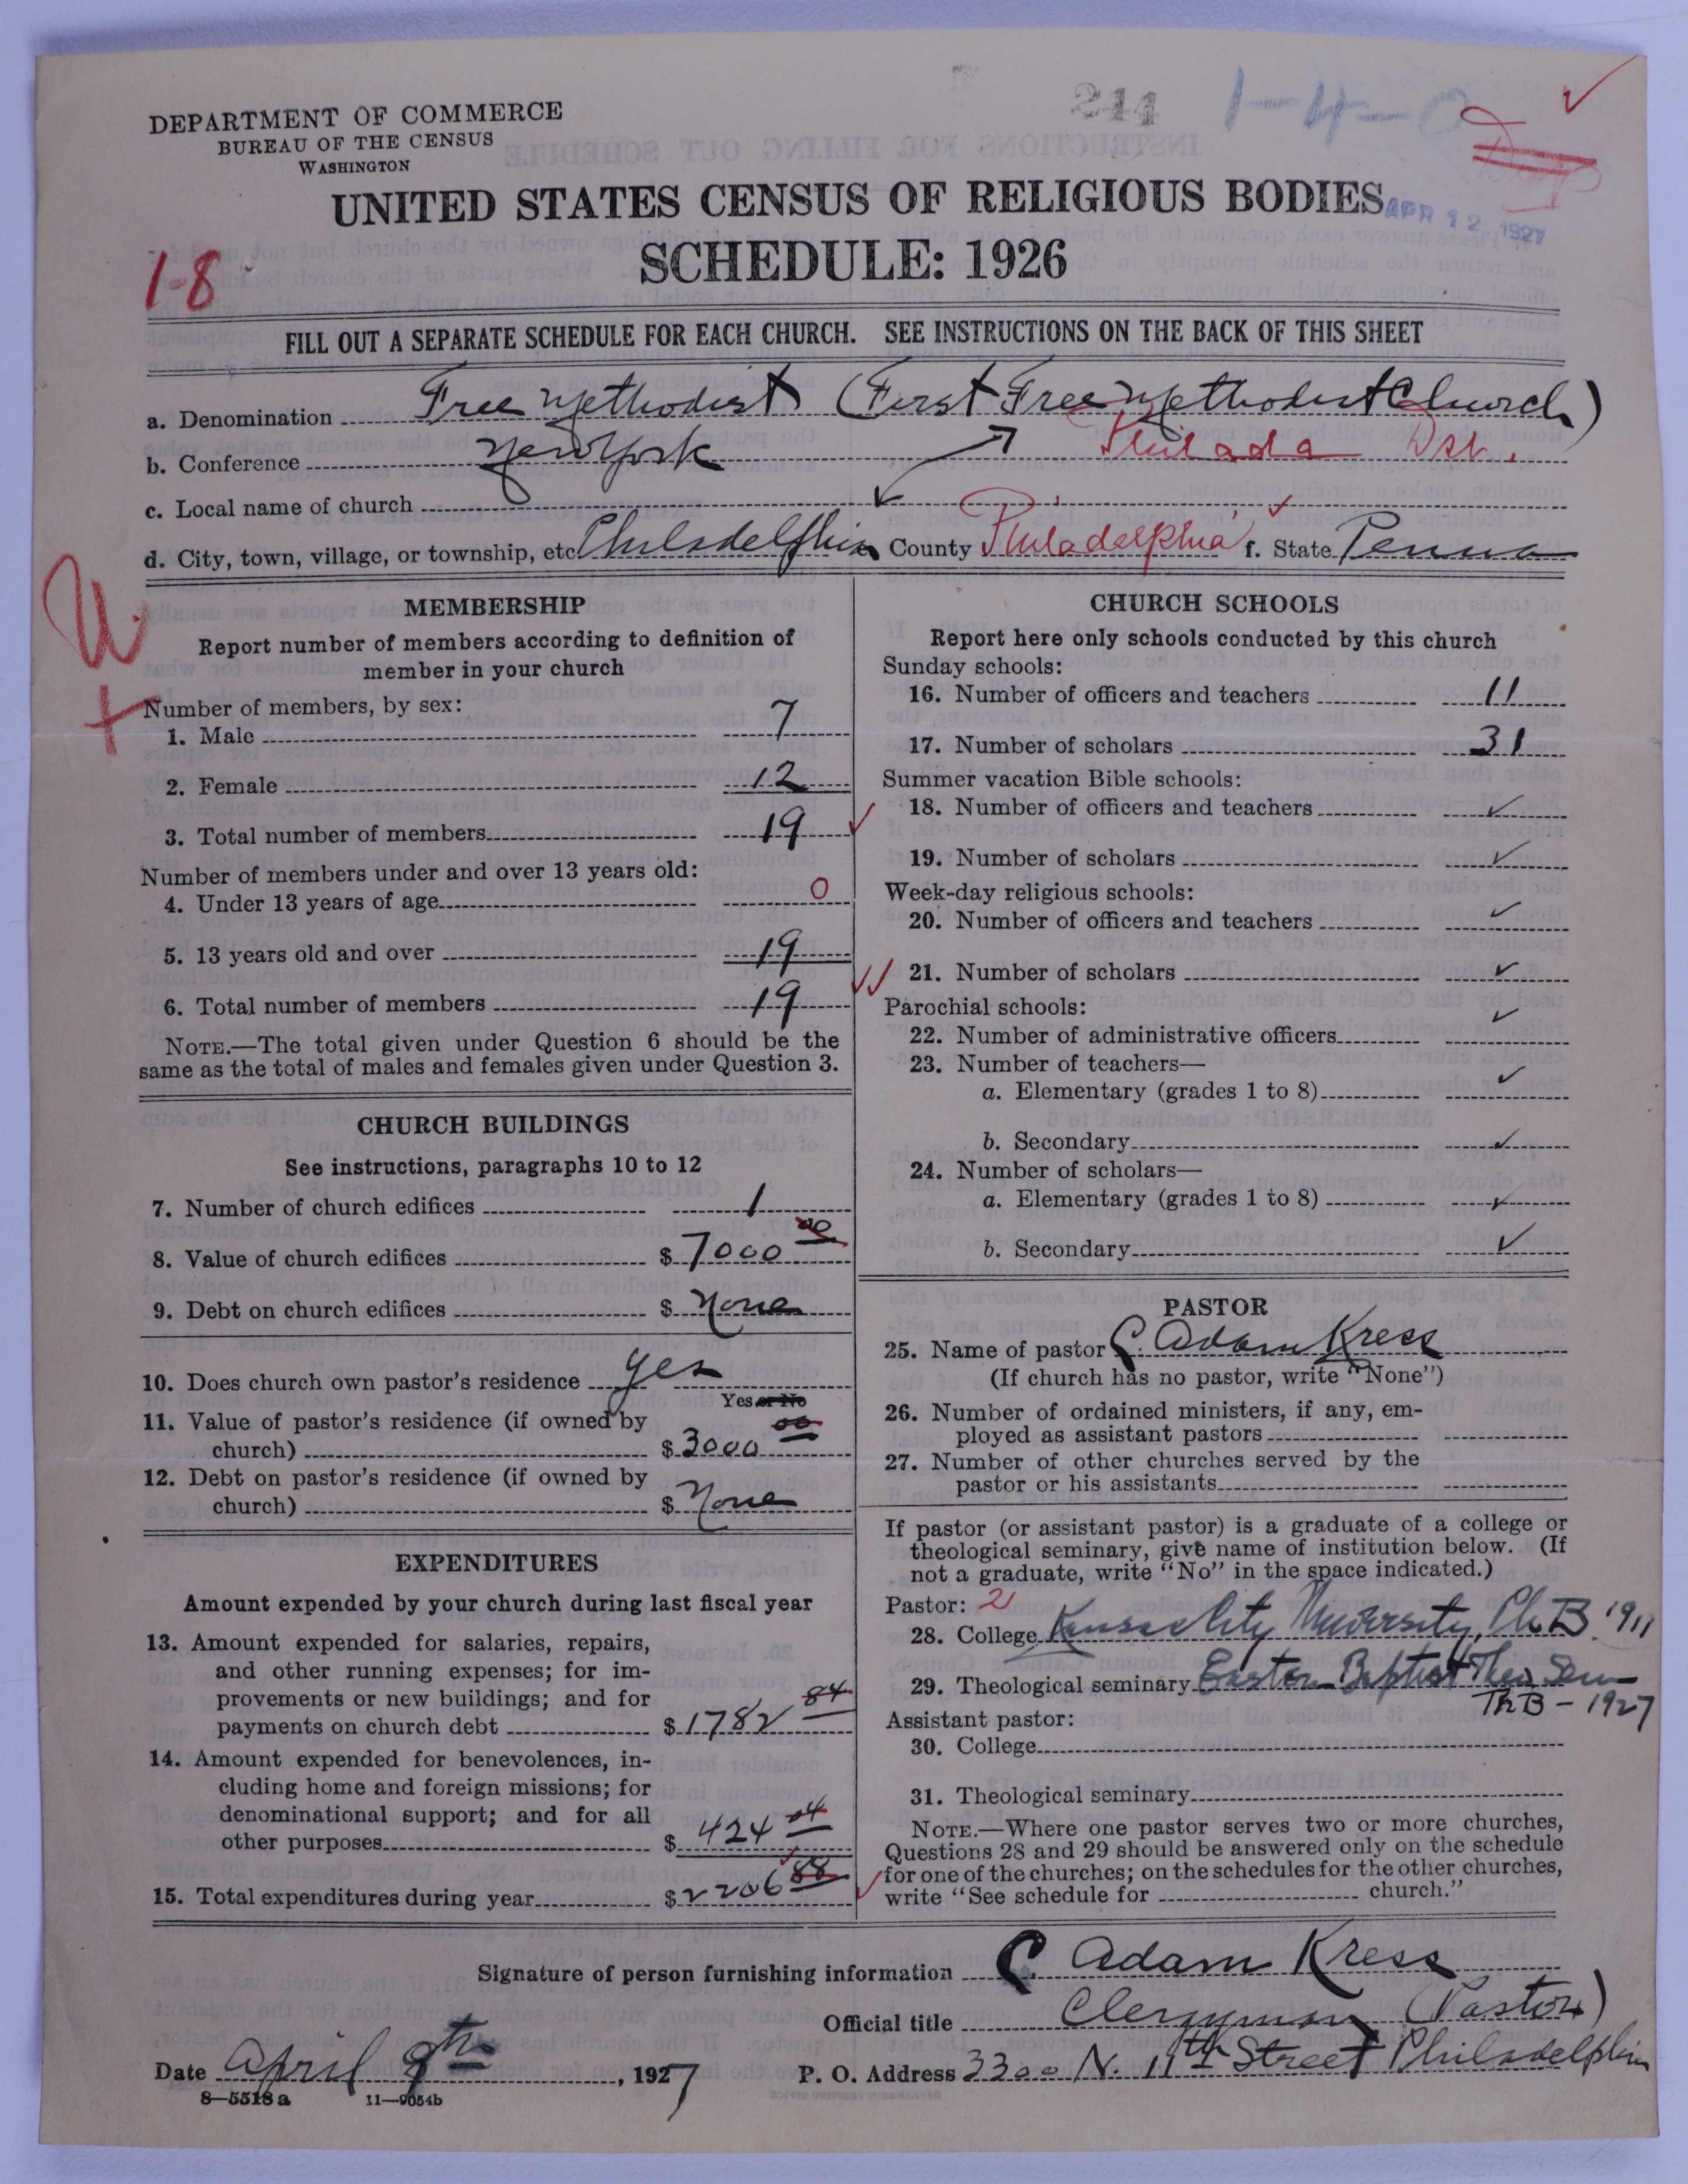 DEPARTMENT OF COMMERCE
BUREAU OF THE CENSUS
WASHINGTON
244 1-4-0
UNITED STATES CENSUS OF RELIGIOUS BODIES
APR 12 1927
SCHEDULE: 1926
1-8
FILL OUT A SEPARATE SCHEDULE FOR EACH CHURCH. SEE INSTRUCTIONS ON THE BACK OF THIS SHEET
a. Denomination Free Methodist (First Free Methodist Church)
b. Conference New York Philada Dst.
c. Local name of church
d. City, town, village, or township, etc Philadelphia County Philadelphia f. State Penna
U
MEMBERSHIP
Report number of members according to definition of
member in your church
Number of members, by sex:
1. Male 7
2. Female 12
3. Total number of members 19
Number of members under and over 13 years old:
4. Under 13 years of age 0
5. 13 years old and over 19
6. Total number of members 19
NOTE.—The total given under Question 6 should be the
same as the total of males and females given under Question 3.
CHURCH BUILDINGS
See instructions, paragraphs 10 to 12
7. Number of church edifices 1
8. Value of church edifices $ 7000 00
9. Debt on church edifices $ None
10. Does church own pastor's residence Yes
Yes or No
11. Value of pastor's residence (if owned by
church) $ 3000 00
12. Debt on pastor's residence (if owned by
church) $ None
EXPENDITURES
Amount expended by your church during last fiscal year
13. Amount expended for salaries, repairs,
and other running expenses; for im-
provements or new buildings; and for
payments on church debt $ 1782 84
14. Amount expended for benevolences, in-
cluding home and foreign missions; for
denominational support; and for all
other purposes $ 424 04
15. Total expenditures during year $ 2206 88
CHURCH SCHOOLS
Report here only schools conducted by this church
Sunday schools:
16. Number of officers and teachers 11
17. Number of scholars 31
Summer vacation Bible schools:
18. Number of officers and teachers ✓
19. Number of scholars ✓
Week-day religious schools:
20. Number of officers and teachers ✓
21. Number of scholars ✓
Parochial schools:
22. Number of administrative officers ✓
23. Number of teachers—
a. Elementary (grades 1 to 8) ✓
b. Secondary ✓
24. Number of scholars—
a. Elementary (grades 1 to 8) ✓
b. Secondary ✓
PASTOR
25. Name of pastor C. Adam Kress
(If church has no pastor, write "None")
26. Number of ordained ministers, if any, em-
ployed as assistant pastors
27. Number of other churches served by the
pastor or his assistants
If pastor (or assistant pastor) is a graduate of a college or
theological seminary, give name of institution below. (If
not a graduate, write "No" in the space indicated.)
Pastor: 21
28. College Kansas City University, Ph B. 1911
29. Theological seminary Eastern Baptist Theo Sem
Th B - 1927
Assistant pastor:
30. College
31. Theological seminary
NOTE.—Where one pastor serves two or more churches,
Questions 28 and 29 should be answered only on the schedule
for one of the churches; on the schedules for the other churches,
write "See schedule for church."
Signature of person furnishing information C. Adam Kress
Official title Clergyman (Pastor)
Date April 9th, 1927 P. O. Address 3300 N. 11th Street Philadelphia
8—5518 a 11—9054b